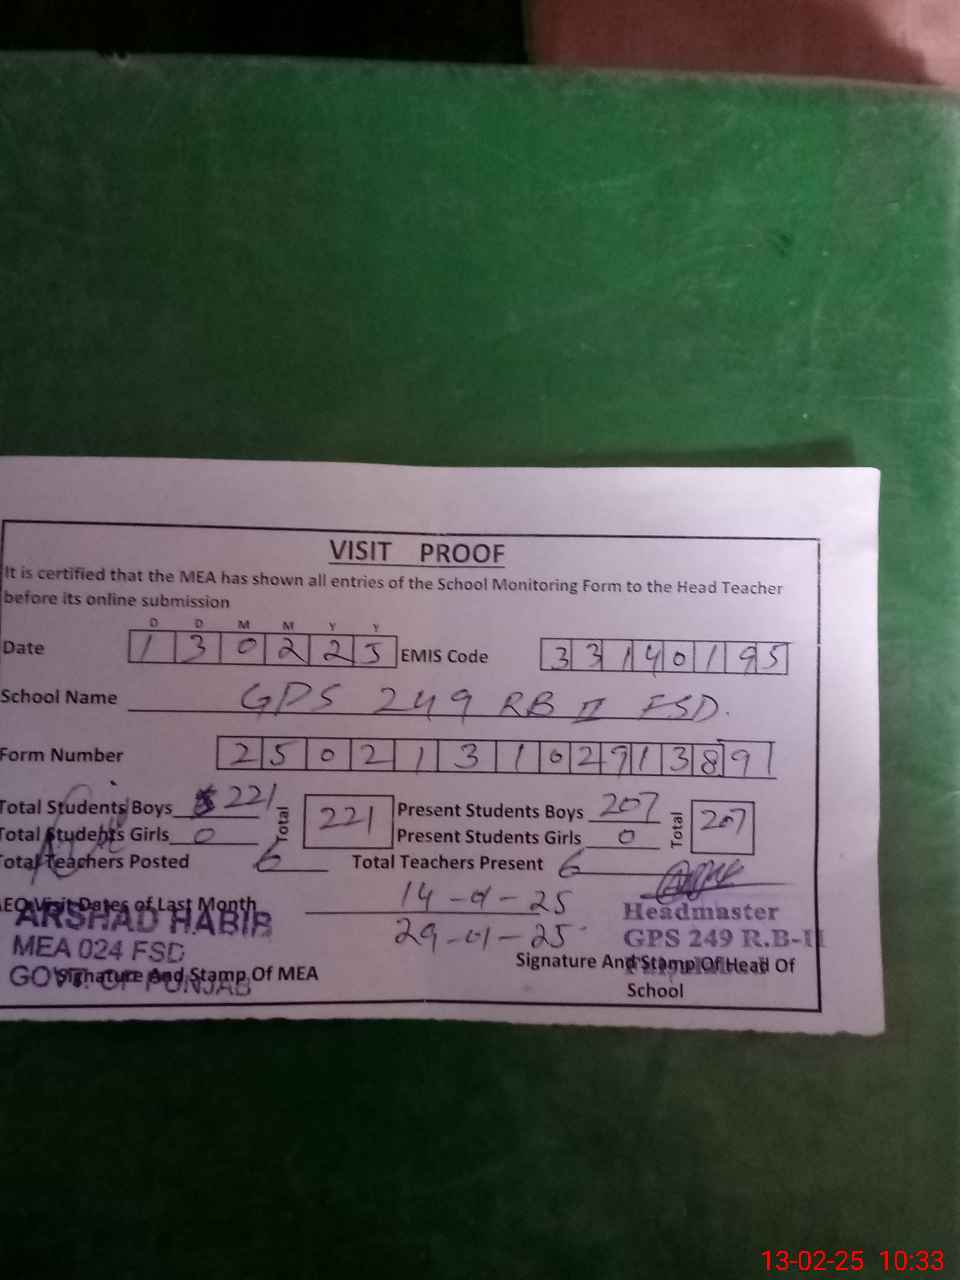 VISIT PROOF
It is certified that the MEA has shown all entries of the School Monitoring Form to the Head Teacher
before its online submission
D D M M Y Y
Date 1 3 0 2 2 5 EMIS Code 3 3 1 4 0 1 9 5
School Name GPS 249 RB II FSD.
Form Number 2 5 0 2 1 3 1 0 2 9 1 3 8 9 1
Total Students Boys 221 Total 221 Present Students Boys 207 Total 207
Total Students Girls 0 Present Students Girls 0
Total Teachers Posted 6 Total Teachers Present 6
AEO Visit Dates of Last Month 14-01-25
29-01-25
ARSHAD HABIB
MEA 024 FSD
GOVT. OF PUNJAB
Signature And Stamp Of MEA
Headmaster
GPS 249 R.B-II
Signature And Stamp Of Head Of
School
13-02-25 10:33